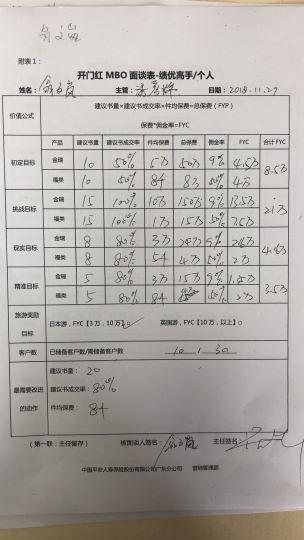 附表1：
开门红 MBO 面谈表-绩优高手/个人
姓名： 主管： 日期：2018.11.27
价值公式 建议书量×建议书成交率×件均保费=总保费（FYP）
保费*佣金率=FYC
产品 建议书量 建议书成交率 件均保费 总保费 佣金率 FYC 合计 FYC
初定目标 金瑞 10 50% 5万 50万 9% 4.5万 8.5万
福类 10 50% 8千 8万 50% 4万
挑战目标 金瑞 15 100% 10万 150万 9% 13.5万 21万
福类 15 100% 1万 15万 50% 7.5万
现实目标 金瑞 8 80% 3万 9%
福类 8 80% 5千 4万 50% 2万
精准目标 金瑞 5 80% 3万 15万 9% 3.5万
福类 5 80% 8千 50% 2万
旅游奖励目标 日本游，FYC【3万，10万） 英国游，FYC【10万，以上】○
客户数 已储备客户数/需储备客户数 10 / 30
最需要改进的动作 建议书量：20
建议书成交率：80%
件均保费：8千
（第一联：主任留存） 被面谈人签名： 主任签名：
中国平安人寿保险股份有限公司广东分公司 营销管理部